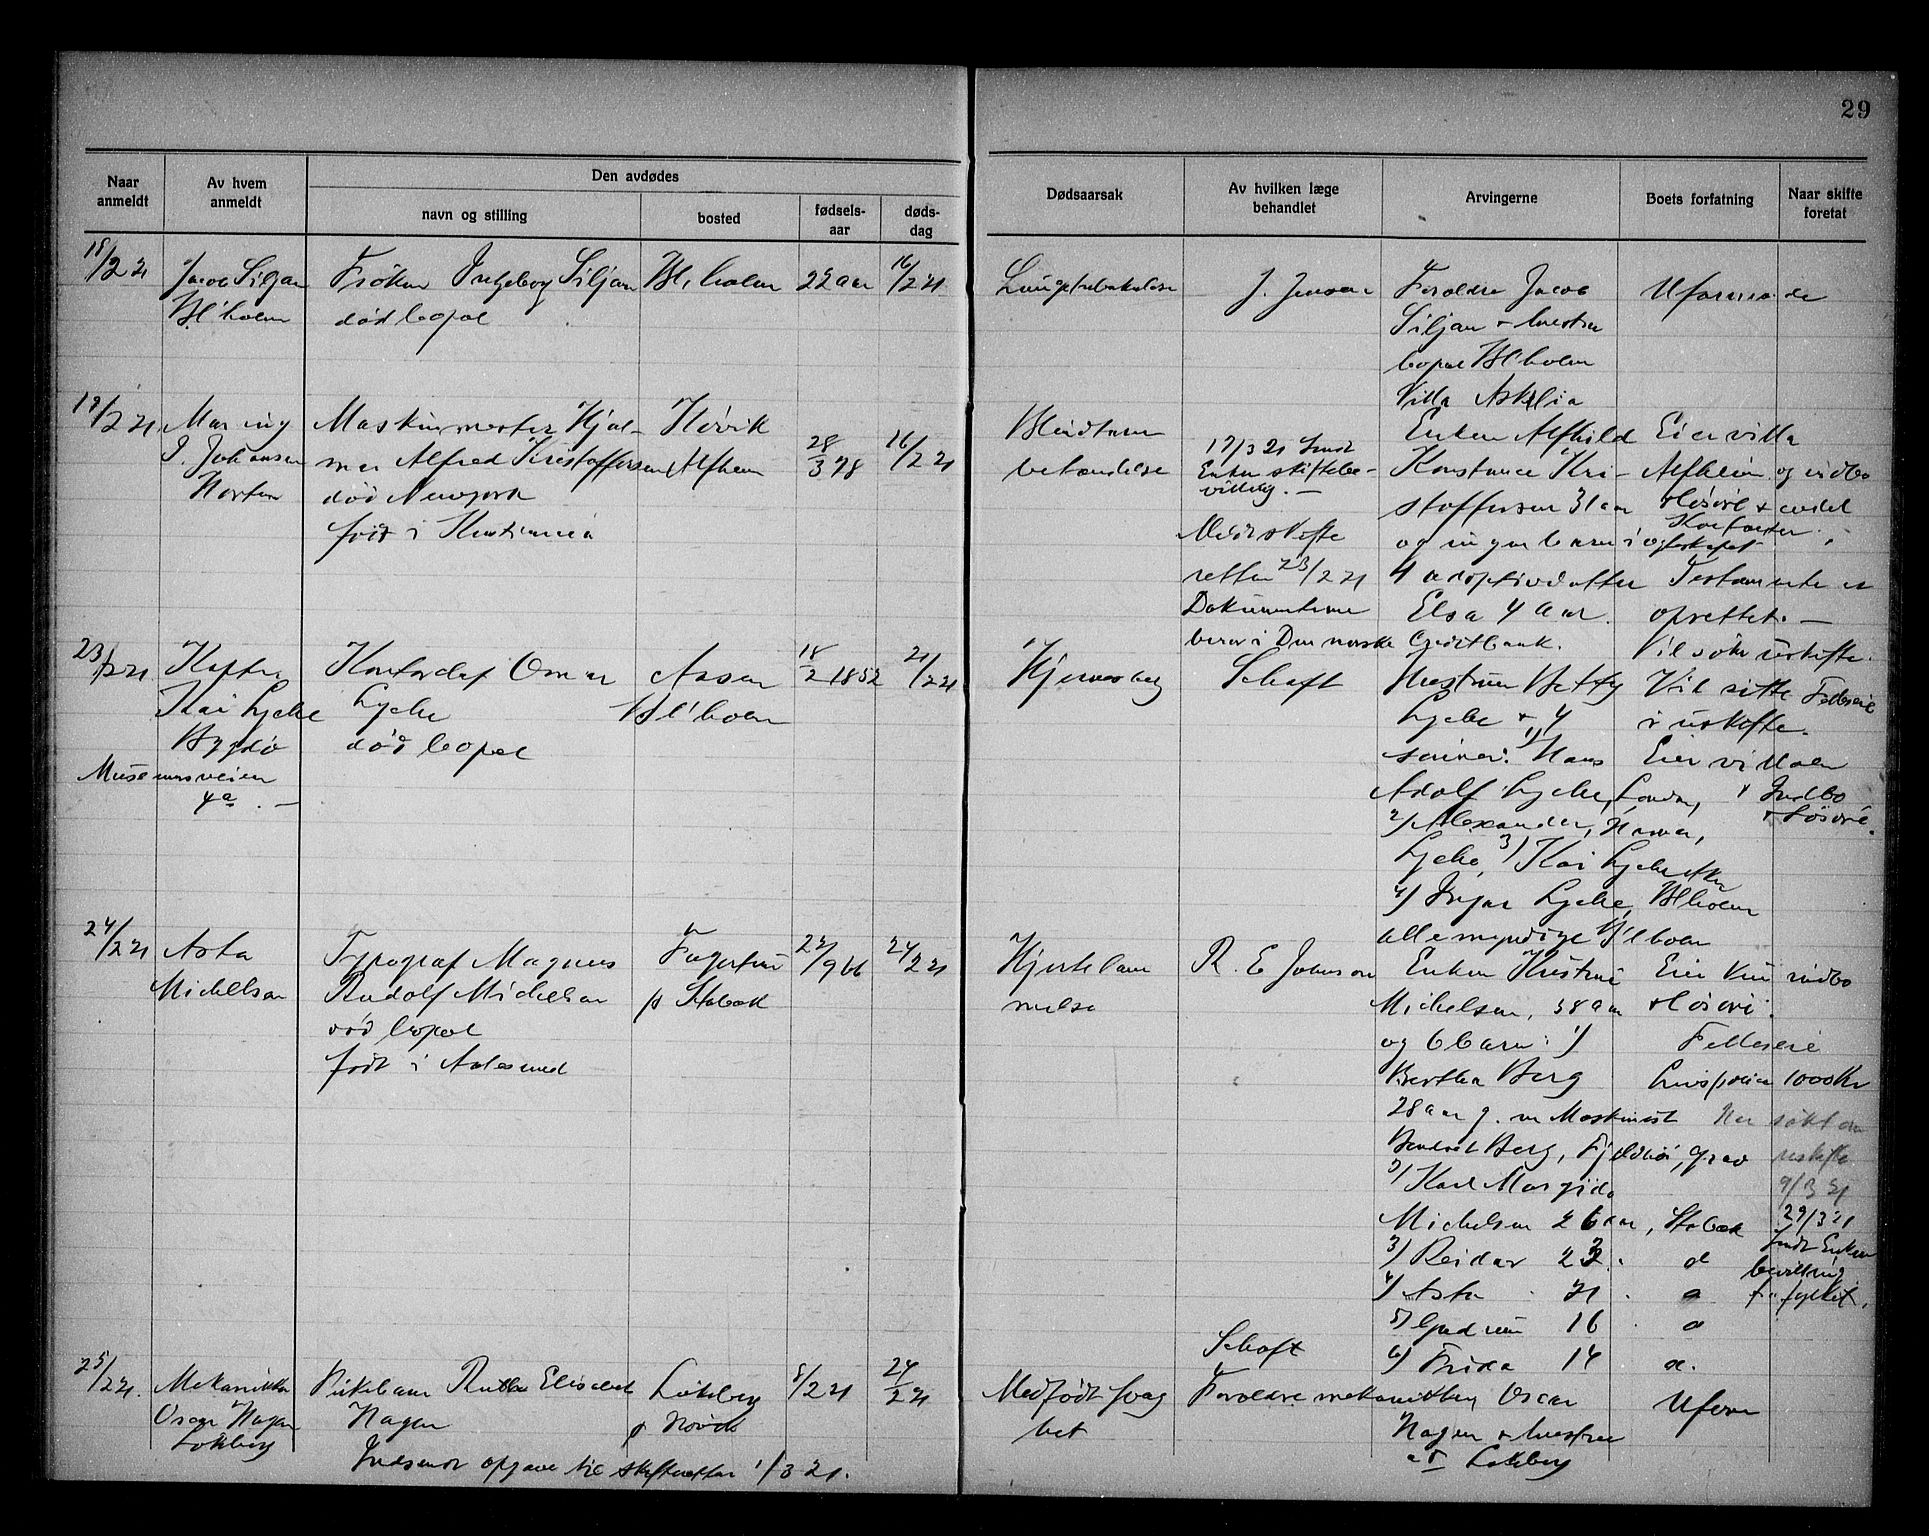 29
Naar anmeldt
Av hvem anmeldt
Den avdødes
navn og stilling
bosted
fødsels-aar
døds-dag
Dødsaarsak
Av hvilken læge behandlet
Arvingerne
Boets forfatning
Naar skifte foretat
18/2 21
Jacob Siljan
Bl'holm
Frøken Ingeborg Siljan
død bopæl
Bl'holm
22 aar
16/2 21
Lungetuberkulose
J. Jensen
Foreldre Jacob
Siljan + hustru
bopæl Bl'holm
Villa
Uformuende
19/2 21
J. Johansen
Horten
Maskinmester Hjal-
mar Alfred Kristoffersen
død Newyork
født i Kristiania
Høvik
Alfheim
28/3 78
16/2 21
Blindtarm
betændelse
17/3 21 Sendt
Enken skiftebe-
villing. —
Meldt skifte
retten 23/2 21
Dokumenterne
beror i Den norske Creditbank.
Enken Alfhild
Konstance Kri-
stoffersen 31 aar
og ingen barn i egteskapet
1 adoptivdatter
Elsa 4 aar.
Eier villa
Alfheim og indbo
+ løsøre +
Testamente er
oprettet. —
Vil søke uskifte.
23/2 21
Kai Lyche
Bygdø
Museumsveien
4a. —
Lyche
død bopæl
Bl'holm
18/2 1852
21/2 21
Schaft
Hustruen Betty
Lyche + 4
sønner: 1) Hans
Adolf Lyche,
2) Alexander,
Lyche, 3) Kai Lyche Aker
4) Lyche, Bl'holm
alle myndige Bl'holm
Vil sitte Felleseie
i uskifte.
Eier villaen
+ Indbo
+ Løsøre.
24/2 21
Asta
Michelsen
Typograf Magnus
Rudolf Michelsen
død bopæl
født i Aalesund
p Stabæk
22/9 66
24/2 21
Hjertelam
melse
R. E Johnson
Enken Kristine
Michelsen, 38 aar
og 6 barn: 1)
Bertha Berg
28 aar g. m Maskinist
Berg,
2) Karl
Michelsen 26 aar, Stabæk
3) Reidar 23 . d
4) Asta . 21 . d
5) Gudrun 16 . d
6) Frida 14 d.
Eier kun indbo
+ løsøre.
Felleseie
Livspolise 1000 Kr
Har søkt om
uskifte
9/3 21
29/3 21
Sendt Enken
bevilling
fra fylket.
25/2 21.
Mekaniker
Oscar Hagen
Løkeberg
Pikebarn Ruth Elisabet
Hagen
Løkeberg
p Høvik
8/2 21
24/2 21
Medfødt svag
het
Schaft
Foreldre mekaniker Oscar
Hagen + hustru
Løkeberg
Uform
Indsendt opgave til skifteretten 1/3 21.